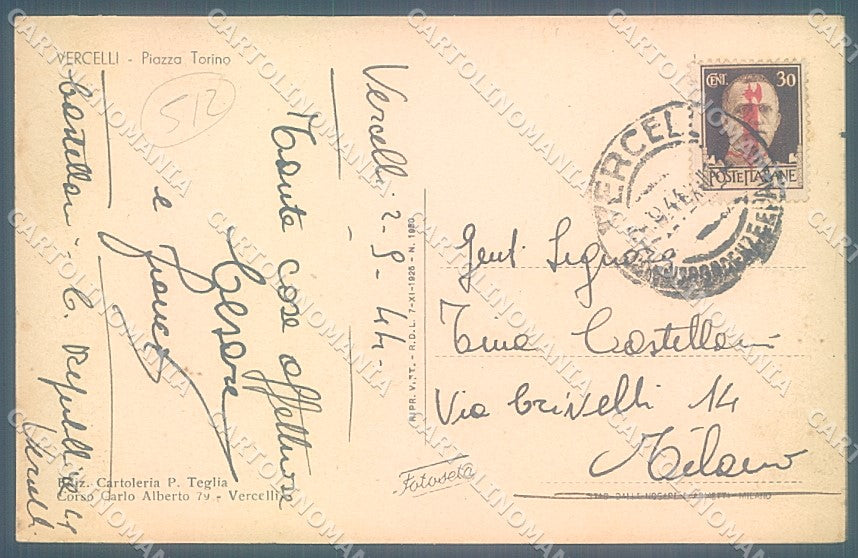 VERCELLI - Piazza Torino
512
Vercelli 2-9-44-
Tante cose affettuose
Cesare
e Franca
Castellani - C. Repubblica 41
Vercelli
Ediz. Cartoleria P. Teglia
Corso Carlo Alberto 79 - Vercelli
RIPR. V.TT. - R.D.L. 7-XI-1925 - N. 1950
Fotoseta
CENT. 30
POSTE ITALIANE
VERCELLI
CORRISPONDENZE E PACCHI
Gent. Signora
Tina Castellani
Via Crivelli 14
Milano
MILANO
CARTOLINOMANIA